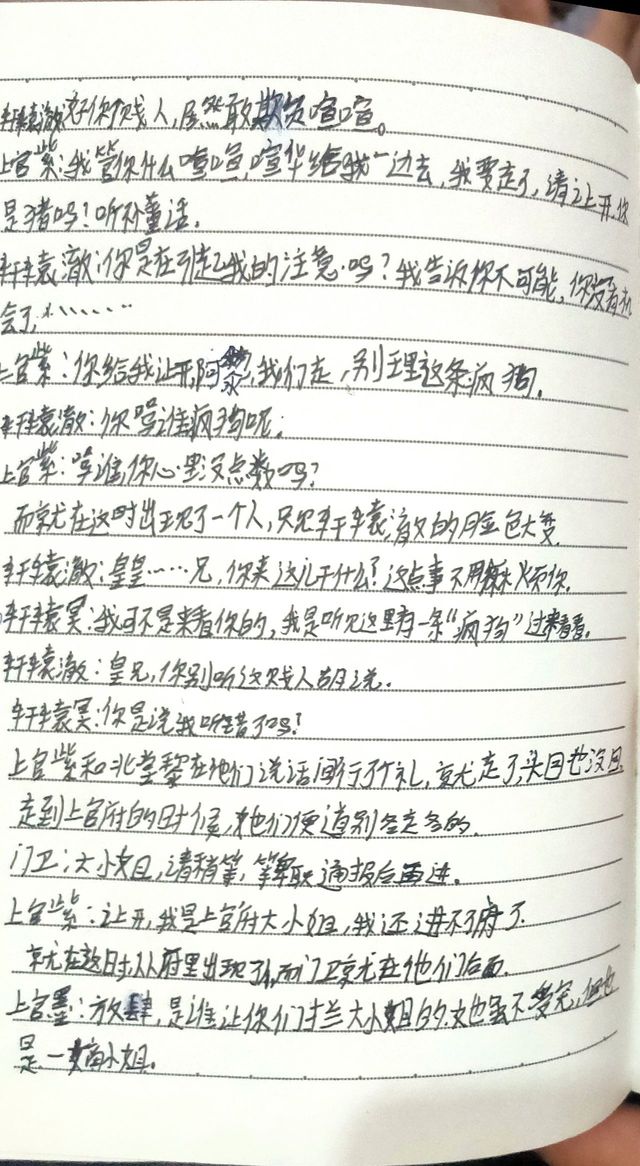 轩辕澈:好你个贱人,居然敢欺负喧喧。
上官紫:我管你什么喧喧,喧华给我一边去,我要走了,请让开,你
是猪吗?听不董话。
轩辕澈:你是在引起我的注意吗?我告诉你不可能,你没有机
会了,……
上官紫:你给我让开,阿黎,我们走,别理这条疯狗。
轩辕澈:你骂谁疯狗呢。
上官紫:骂谁,你心里没点数吗?
而就在这时出现了一个人,只见轩辕澈的脸色大变
轩辕澈:皇皇……兄,你来这儿干什么?这点事不用麻烦你。
轩辕冥:我可不是来看你的,我是听见这里有一条“疯狗”过来看看。
轩辕澈:皇兄,你别听这贱人胡说。
轩辕冥:你是说我听错了吗?
上官紫和北堂黎在他们说话间行了个礼,就走了,头回也没回
走到上官府的时候,她们便道别各走各的。
门卫:大小姐,请稍等,等我通报后再进。
上官紫:让开,我是上官府大小姐,我还进不了府了
就在这时,从府里出现了人,而门卫就在他们后面。
上官墨:放肆,是谁让你们拦大小姐的.她虽不受宠,但也
是一嫡小姐。